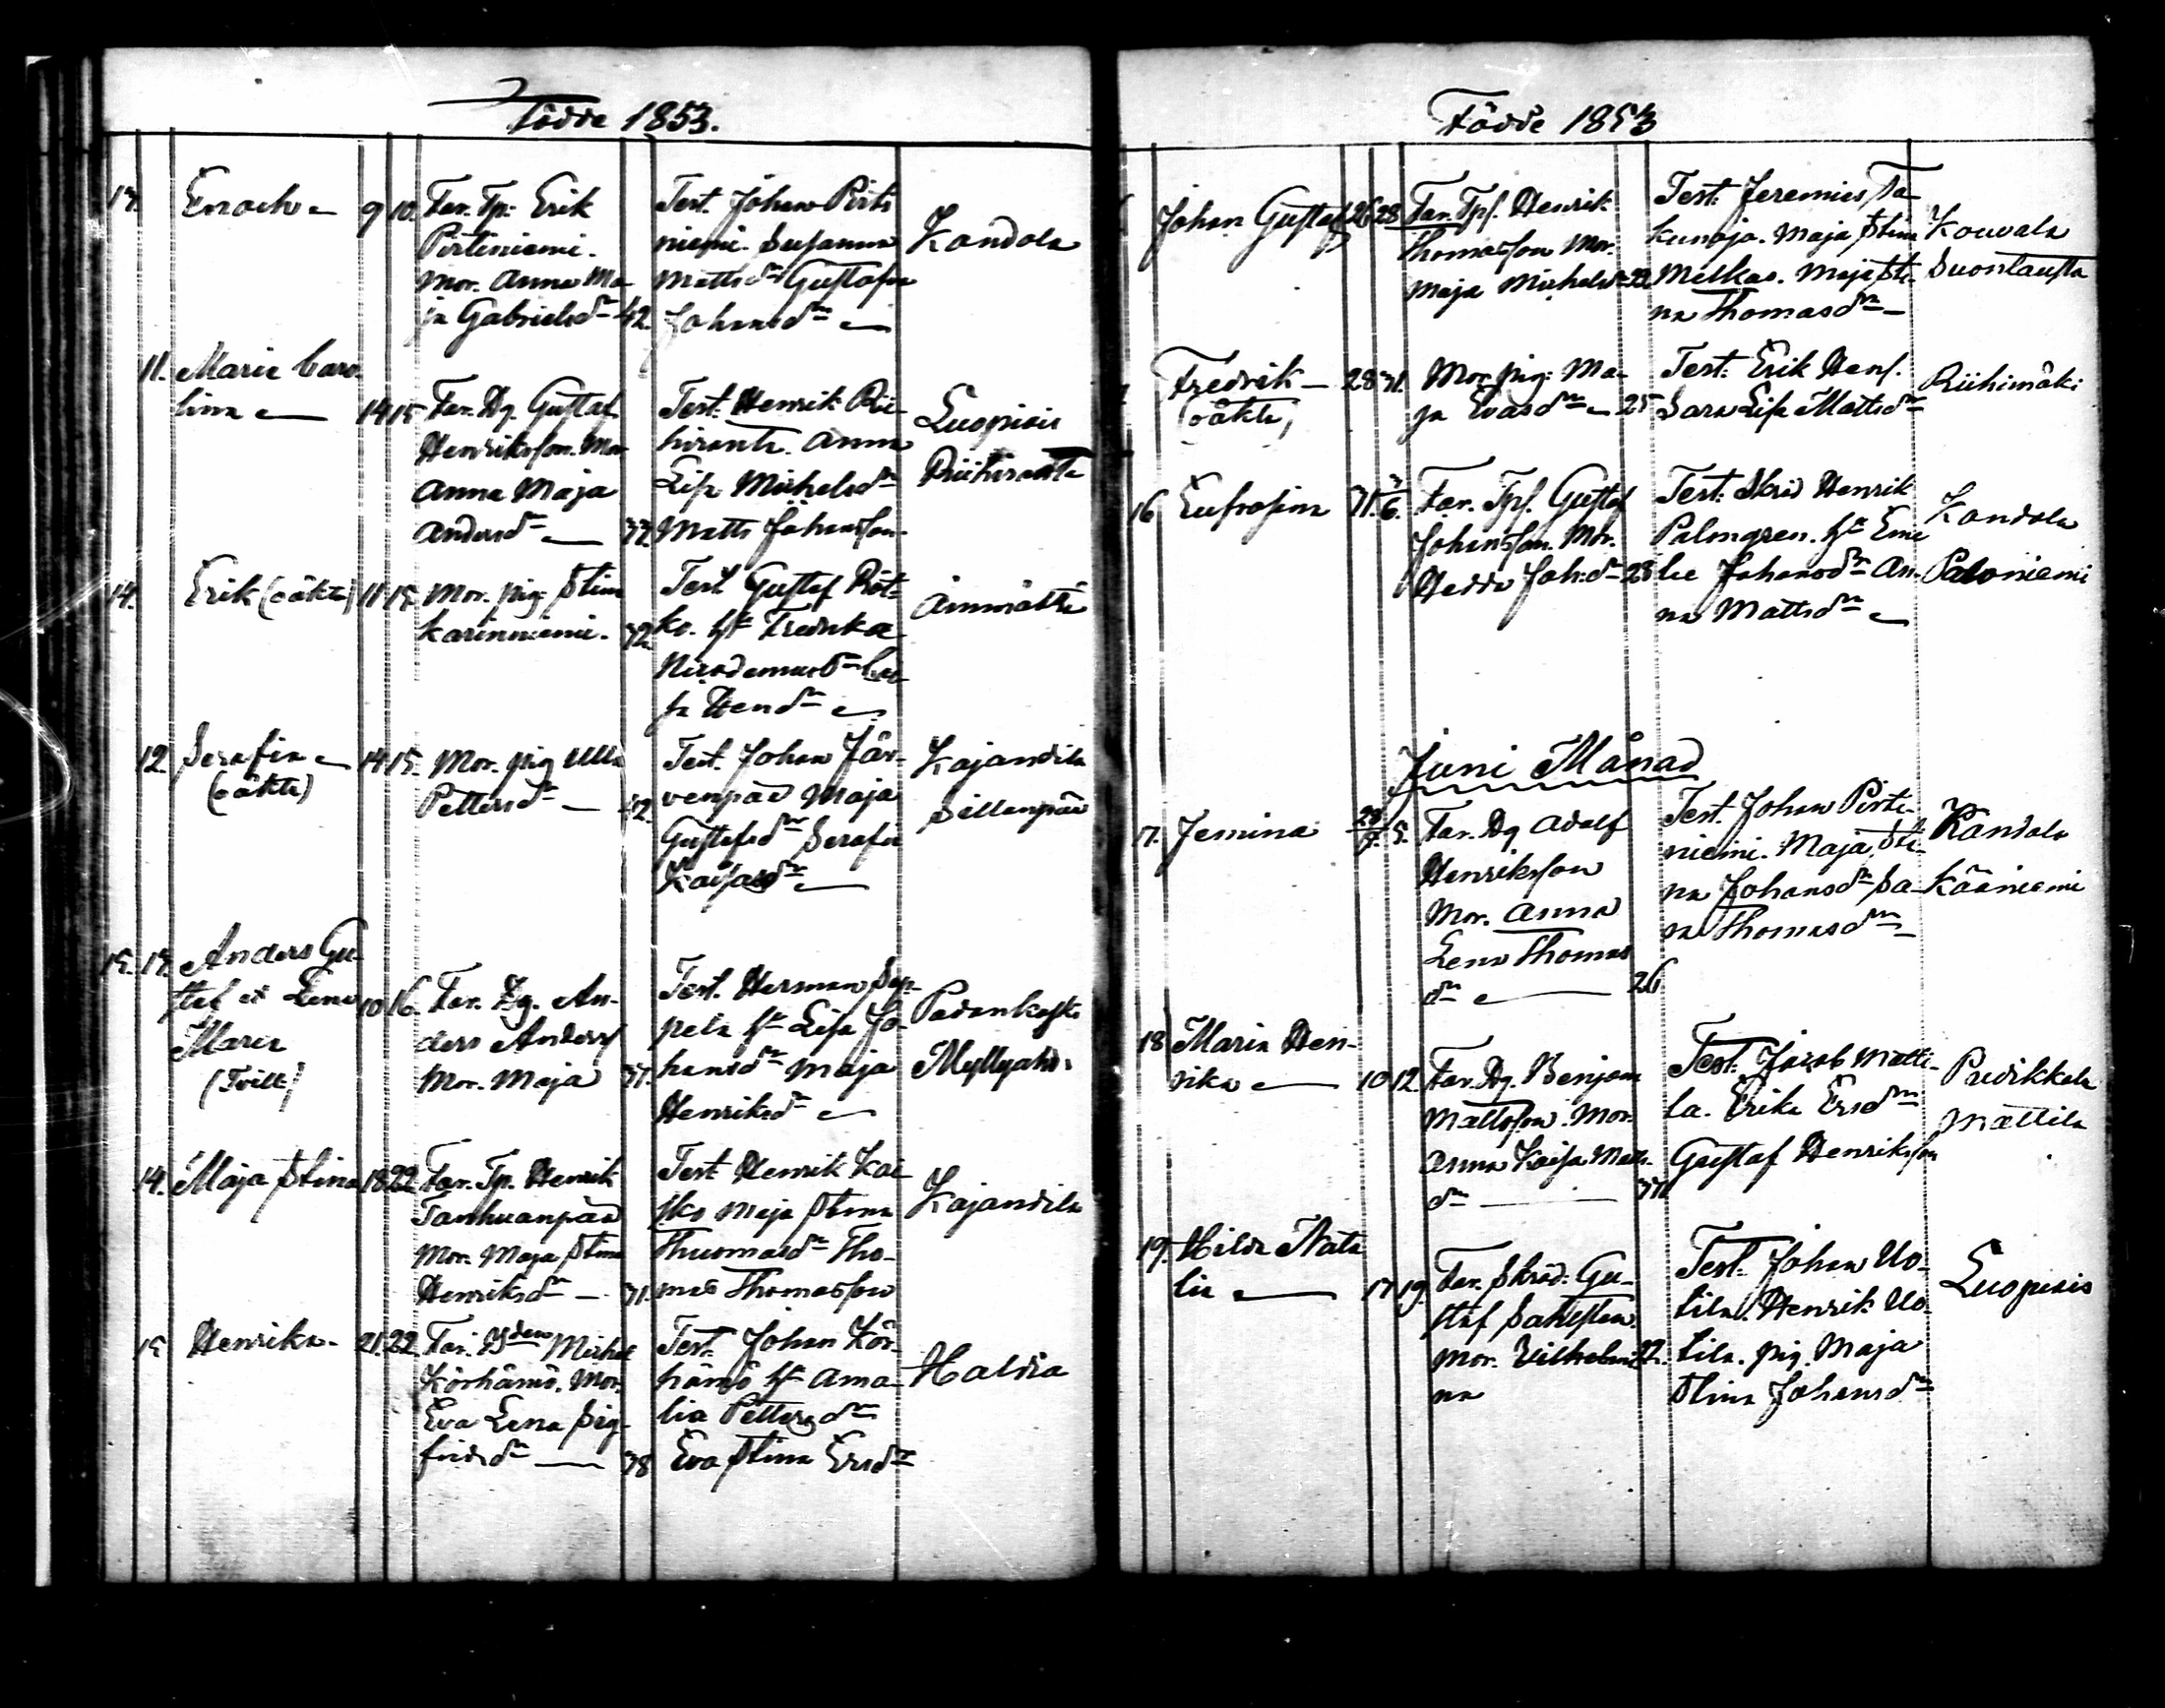 Födde 1853.
13. Enoch 9 10. Far. Tp. Erik
Pirtiniemi.
Mor. Anna Ma-
ja Gabrielsdr 42.
Test. Johan Pirti
niemi. Susanna
Mattsdr Gustafva
Johansdr
Kandola
11. Maria Caro-
lina 14 15. Far. Dg. Gustaf
Henriksson. Mor
Anna Maja
Andersdr 33.
Test. Henrik Rii-
hiranta. Anna
Lisa Michelsdr
Matts Johansson.
Luopiois
Riihiranta
14. Erik (oäkta) 11 15. Mor. pig. Stina
Karinniemi. 32.
Test. Gustaf Röt-
kö. hu Fredrika
Nicodemusdr
sa Hendr
Ämmättä
12. Serafia 14 15. Mor. pig Ulla
(oäkta)
Pettersdr 42.
Test. Johan Jär-
venpää Maja
Gustafsdr Serafia
Kaisasdr
Kajandila
Sillanpää
15. 13. Anders Gu-
staf et Lena 10 16. Far. Dg. An-
Maria
(Tvill)
ders Anderss
Mor. Maja 37.
Test. Herman Sep-
pelä hu Lisa Jo-
hansdr Maja
Henriksdr
Padankoski
Myllyaho
14. Maja Stina 18 22. Far. Tp. Henrik
Tanhuanpää
Mor. Maja Stina
Henriksdr 31.
Test. Henrik Kai
sko Maja Stina
Thuomasdr Tho-
mas Thomasson
Kajandila
15 Henrika 21. 22. Far. Bden Michel
Körhämö. Mor.
Eva Lena Sig-
fridsdr 38
Test. Johan Kör-
hämö hu Ama-
lia Pettersdr
Eva Stina Ersdr
Haldia
Födde 1853
Johan Gustaf 26 28 Far. Tpf. Henrik
Thomasson Mor.
Maja Michelsdr 32
Test. Jeremias Ta-
kunoja. Maja Stina
Melkas. Maja Sti-
na Thomasdr
Kouvala
Suontausta
Fredrik 28 31. Mor. pig. Ma-
(oäkta)
ja Evasdr 25
Test. Erik Hens.
Sara Lisa Mattsdr
Riihimäki
16 Eufrosina 31. 5/6. Far. Tpf. Gustaf
Johansson. Mor.
Hedda Joh:dr 28
Test. Skrd Henrik
Palmgren. hu Emi
lie Johansdr An-
na Mattsdr
Kandola
Paloniemi
Juni Månad
17. Jemina 28/5. 5. Far. Dg Adolf
Henriksson
Mor. Anna
Lena Thomas
dr 26
Test. Johan Pirti-
niemi. Maja Sti-
na Johansdr Sa-
ra Thomasdr
Kandola
Kääniemi
18 Maria Hen-
rika 10 12. Far. Dg. Benjam
Mattsson. Mor.
Anna Kaisa Matts-
dr 37
Test. Jacob Matti-
la. Erika Ersdr
Gustaf Henriksson
Puoikkala
Mattila
19. Hilda Nata
lia 17 19. Far. Skräd. Gu-
staf Sahlsten.
Mor. Vilhelmi 22.
na
Test. Johan Uo-
tila. Henrik Uo-
tila. pig. Maja
Stina Johansdr
Luopiois